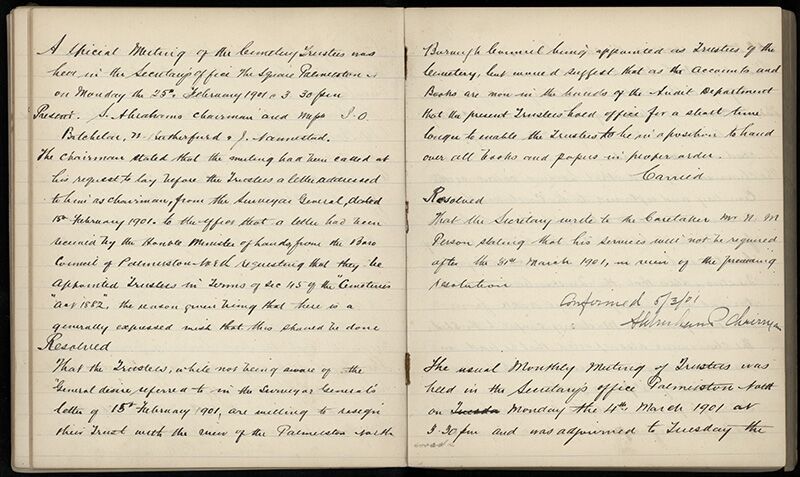 A Special Meeting of the Cemetery Trustees was
held in the Secretary's Office The Square Palmerston N
on Monday the 25th February 1901 @ 3.30 pm
Present. Abrahams Chairman and Mess J.O.
Batchelar, Rutherfurd & J. Nannestad.
The Chairman stated that the meeting had been called at
his request to lay before the Trustees a letter addressed
to him as chairman, from the Surveyor General, dated
15th February 1901. to the effect that a letter had been
received by the Honble Minister of Lands, from the Boro
Council of Palmerston North requesting that they be
appointed Trustees in Terms of Sec 45 of the "Cemeteries
"Act 1882", the reason given being that there is a
generally expressed wish that this should be done
Resolved
That the Trustees, while not being aware of the
"General desire, referred to in the Surveyor General's
letter of 15th February 1901, are willing to resign
their Trust with the view of the Palmerston North
Borough Council being appointed as Trustees of the
Cemetery, but would suggest that as the accounts and
Books are now in the hands of the Audit Department
that the present Trustees hold office for a short time
longer to enable the Trustees to be in a position to hand
over all books and papers in proper order.
Carried
Resolved
That the Secretary write to the Caretaker Mr N. M
Person stating that his services will not be required
after the 31st March 1901, in view of the preceding
resolution
Confirmed 5/3/01
Chairman
The usual Monthly Meeting of Trustees was
held in the Secretary's office Palmerston North
on Tuesda Monday the 4th March 1901 at
3.30 pm and was adjourned to Tuesday the